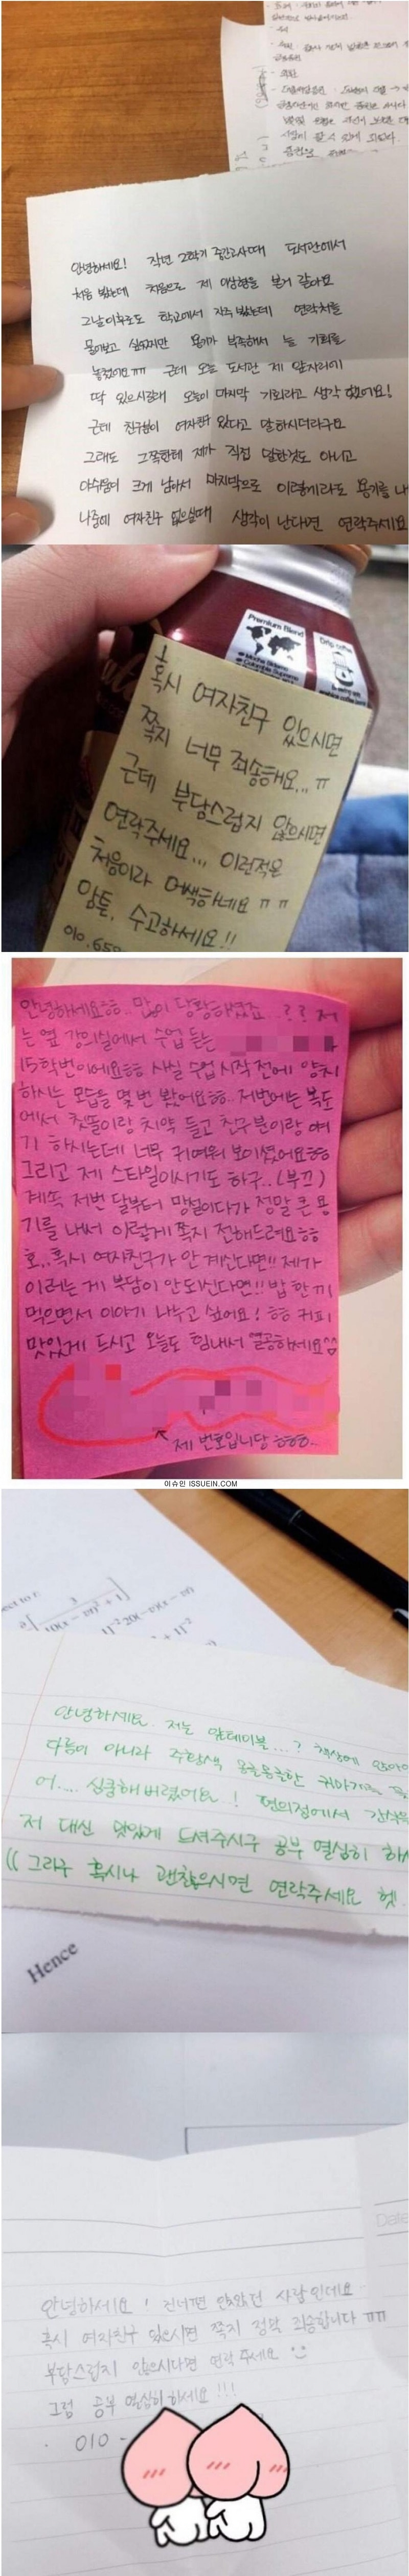 안녕하세요! 작년 2학기 중간고사때 도서관에서
처음 봤는데 처음으로 제 이상형을 본거 같아요
그날이후로도 학교에서 자주 봤는데 연락처를
물어보고 싶었지만 용기가 부족해서 늘 기회를
놓쳤어요ㅠㅠ 근데 오늘 도서관 제 앞자리에
딱 있으시길래 오늘이 마지막 기회라고 생각 했어요!
근데 친구분이 여자친구 있다고 말하시더라구요
그래도 그쪽한테 제가 직접 말한것도 아니고
아쉬움이 크게 남아서 마지막으로 이렇게라도 용기를
나중에 여자친구 없으실때 생각이 난다면 연락주세요
Premium Blend
Drip coffee
혹시 여자친구 있으시면
쪽지 너무 죄송해요...ㅠ
근데 부담스럽지 않으시면
연락주세요... 이런적은
처음이라 어색하네요ㅠㅠ
암튼, 수고하세요!!
안녕하세요ㅎㅎ.. 많이 당황하셨죠..?? 저
는 옆 강의실에서 수업 듣는
15학번이에요ㅎㅎ 사실 수업 시작 전에 양치
하시는 모습을 몇 번 봤어요ㅎㅎ. 저번에는 복도
에서 칫솔이랑 치약 들고 친구분이랑 얘
기 하시는데 너무 귀여워 보이셨어요ㅎㅎ
그리고 제 스타일이시기도 하구..(부끄)
계속 저번 달부터 망설이다가 정말 큰 용
기를 내서 이렇게 쪽지 전해드려요ㅎㅎ
호..혹시 여자친구가 안 계신다면!! 제가
이러는 게 부담이 안되신다면!! 밥 한끼
먹으면서 이야기 나누고 싶어요! ㅎㅎ 커피
맛있게 드시고 오늘도 힘내서 열공하세요^^
제 번호입니당 ㅎㅎㅎ..
이슈인 ISSUEIN.COM
안녕하세요. 저는 앞테이블...? 책상에
다름이 아니라 주황색 올록볼록한 귀마개를
어.... 심쿵해버렸어요! 편의점에서
저 대신 맛있게 드셔주시구 공부 열심히
((그라구 혹시나 괜찮으시면 연락주세요 헷
Hence
Date
안녕하세요! 건너편 앉았던 사람인데요
혹시 여자친구 있으시면 쪽지 정말 죄송합니다 ㅠㅠ
부담스럽지 않으시다면 연락 주세요 :)
그럼 공부 열심히 하세요!!!
010 -